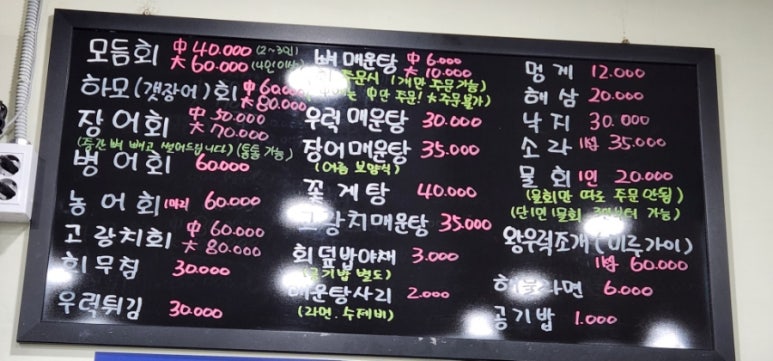 모듬회 中 40.000 (2~3인)
大 60.000 (4인이상)
하모(갯장어)회 中 60.000
大 80.000
장어회 中 50.000
大 70.000
(중간뼈 빼고 썰어드립니다) (통통 가능)
병어회 60.000
농어회 1마리 60.000
고랑치회 中 60.000
大 80.000
회무침 30.000
우럭튀김 30.000
뼈매운탕 中 6.000
大 10.000
주문시 1개만 주문가능)
中만 주문! 大주문불가)
우럭매운탕 30.000
장어매운탕 35.000
(여름 보양식)
꽃게탕 40.000
고랑치매운탕 35.000
회덮밥야채 3.000
(공기밥 별도)
매운탕사리 2.000
(라면.수제비)
멍게 12.000
해삼 20.000
낙지 30.000
소라 35.000
물회 1인 20.000
(물회만 따로 주문 안됨)
(단1인 물회 가능)
왕우럭조개(미루가이)
60.000
라면 6.000
공기밥 1.000